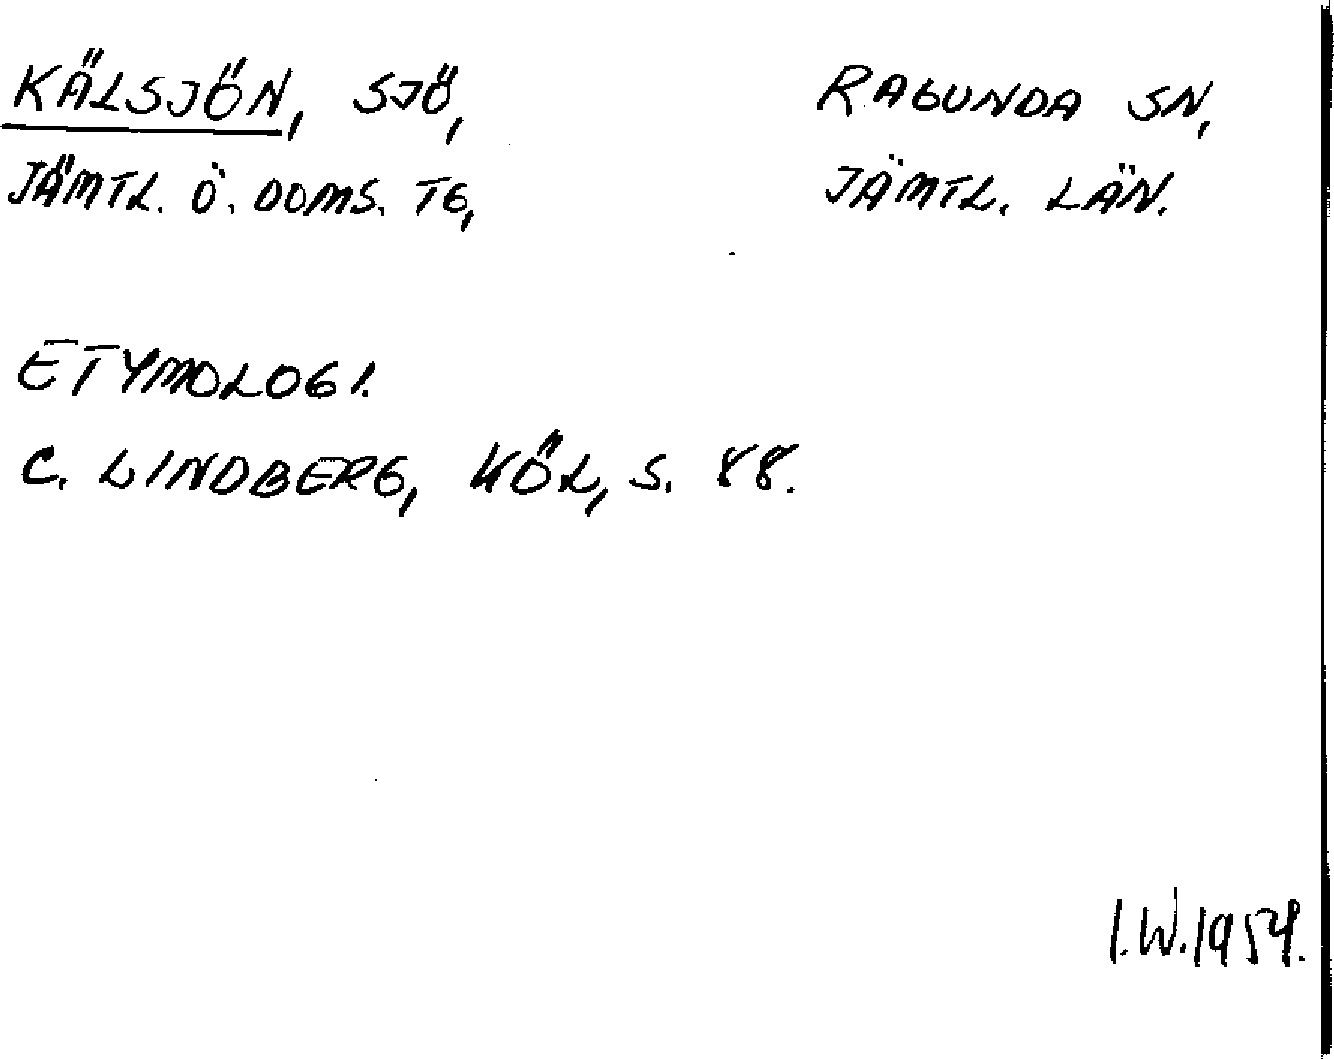 KÄLSJÖN, SJÖ, RAGUNDA SN,
JÄMTL. Ö. DOMS. TG, JÄMTL. LÄN.
ETYMOLOGI.
C. LINDBERG, KÖL, S. 88.
I.W.1954.